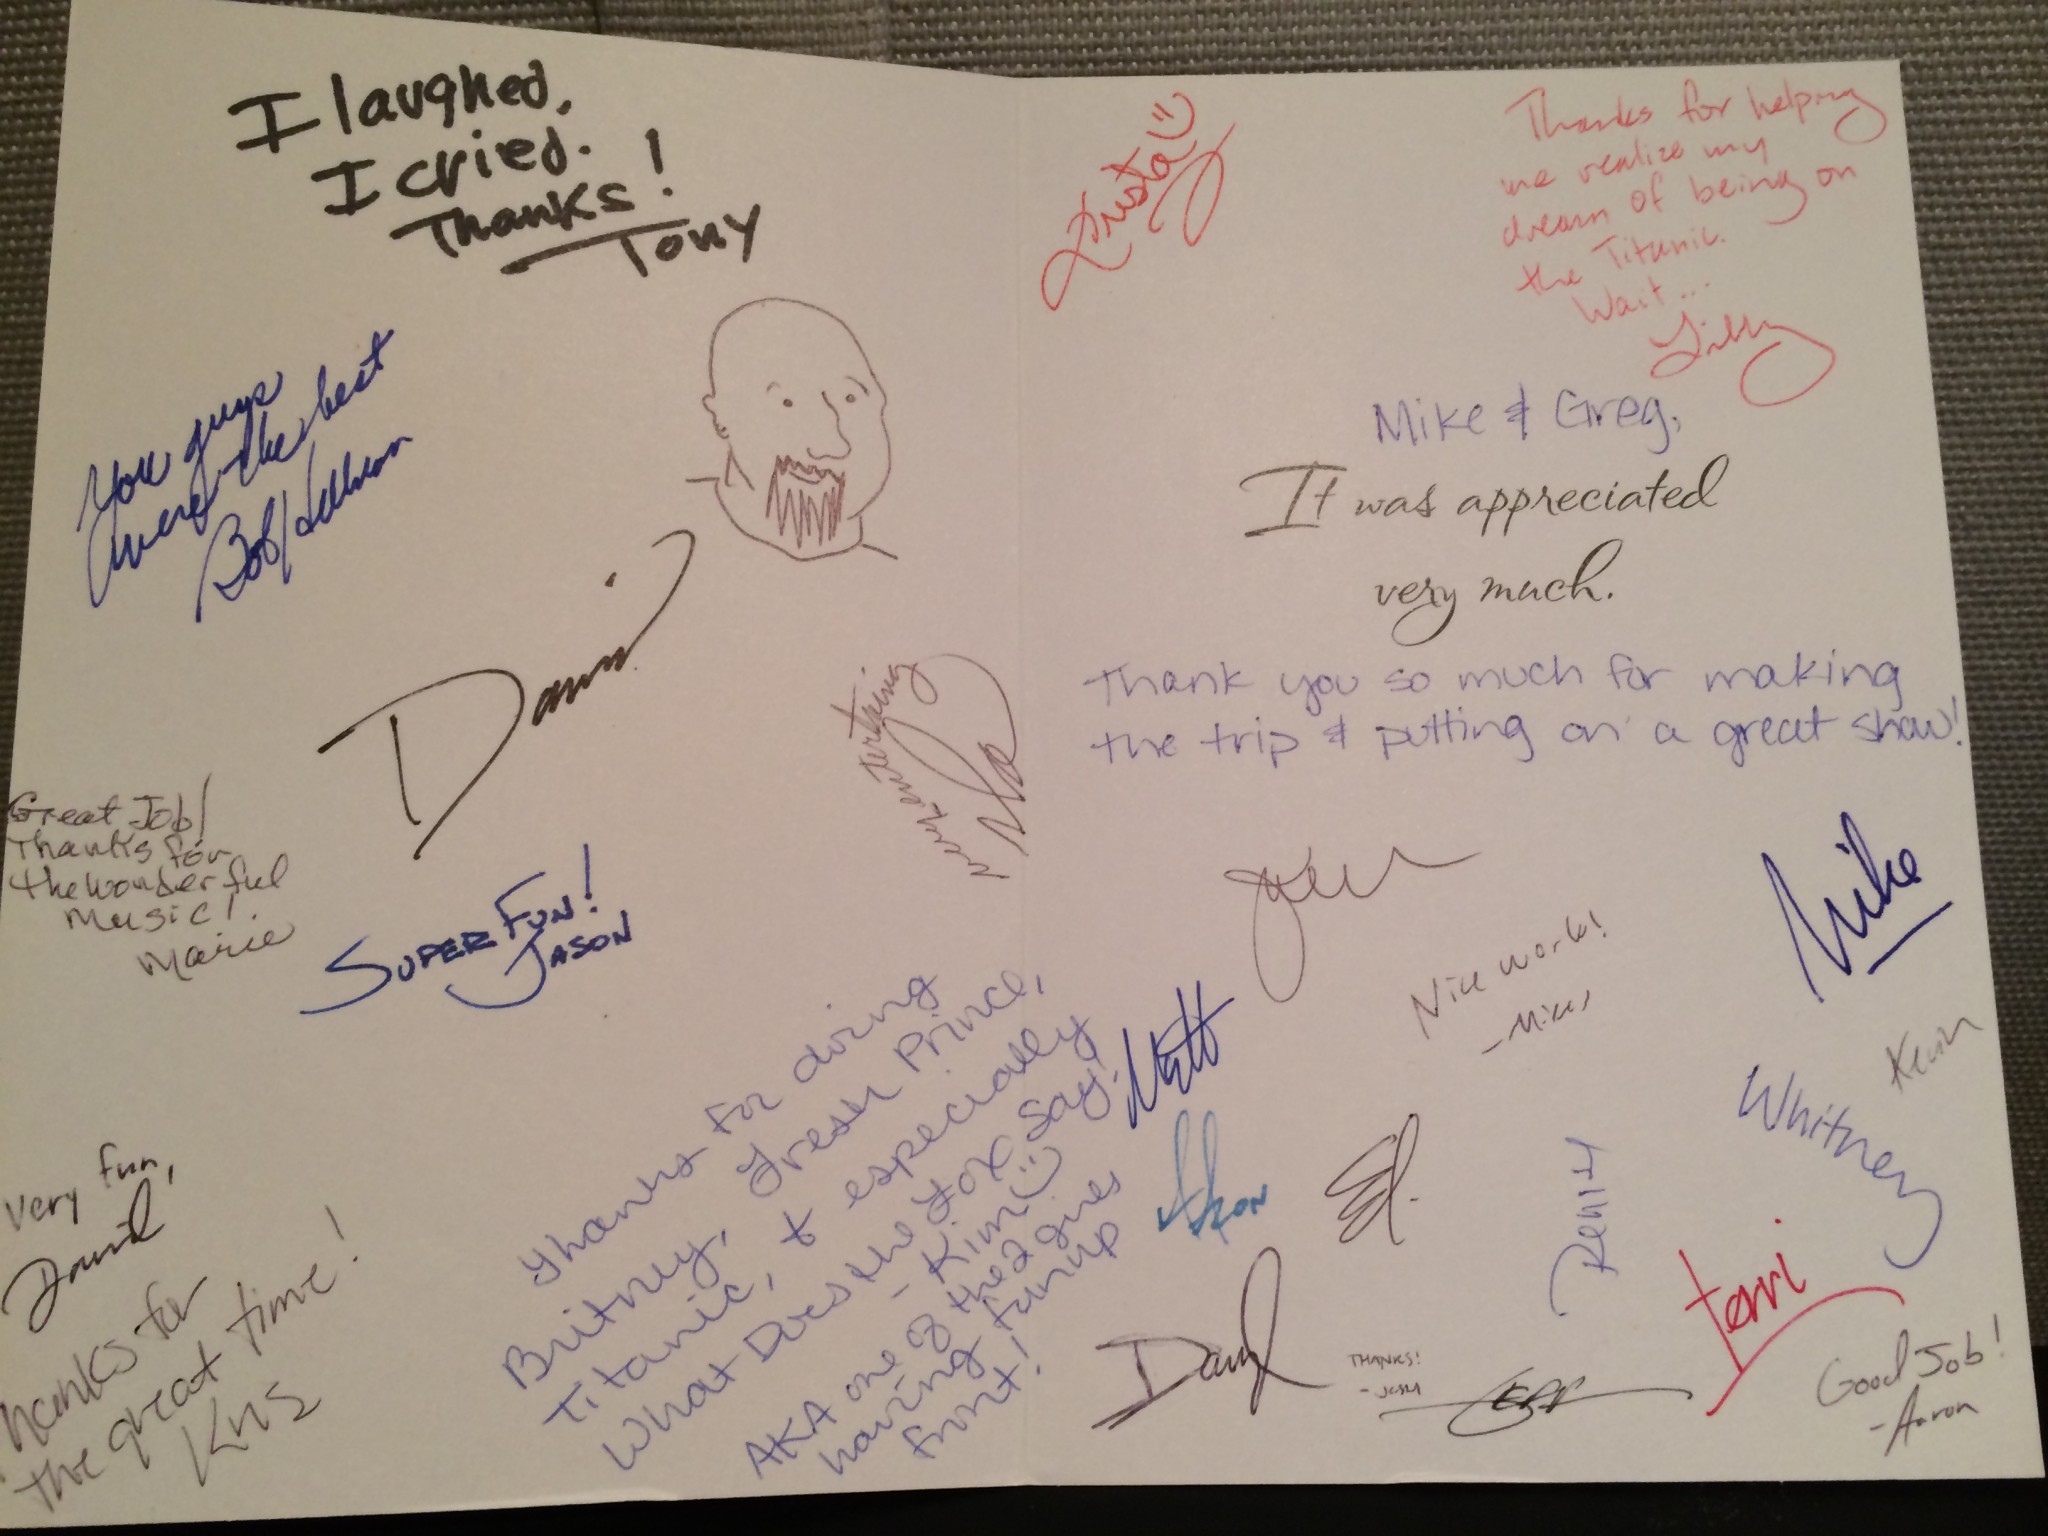 I laughed,
I cried.
Thanks!
Tony
You guys
were the best
Bob
Great Job!
Thanks for
the wonderful
Music!
Marie
SUPER FUN!
JASON
very entertaining
very fun,
David
Thanks for
the great time!
Kris
Thanks for doing
Britney, Fresh Prince,
Titanic, & especially
What Does the Fox Say!
- Kim
AKA one of the 2 gives
having fun up
front!
Krista
Thanks for helping
me realize my
dream of being on
the Titanic.
Wait...
Libby
Mike & Greg,
It was appreciated
very much.
Thank you so much for making
the trip & putting on a great show!
Mike
Nice work!
Kevin
Matt
Whitney
Ed.
Daryl
THANKS!
- JOSH
JEFF
Terri
Good Job!
- Aaron